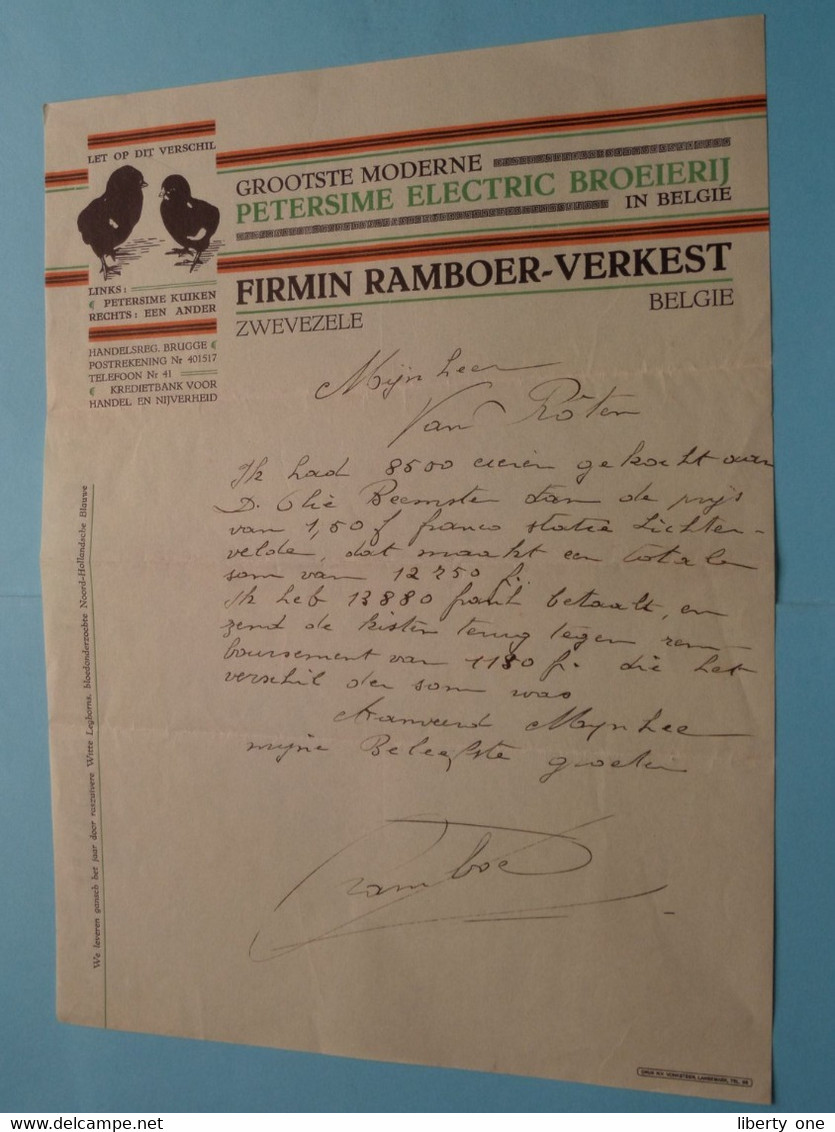 LET OP DIT VERSCHIL
LINKS :
PETERSIME KUIKEN
RECHTS : EEN ANDER
HANDELSREG. BRUGGE
POSTREKENING Nr 401517
TELEFOON Nr 41
KREDIETBANK VOOR
HANDEL EN NIJVERHEID
GROOTSTE MODERNE
PETERSIME ELECTRIC BROEIERIJ
IN BELGIE
FIRMIN RAMBOER-VERKEST
ZWEVEZELE
BELGIE
We leveren gansch het jaar door raszuivere Witte Legborns, bloedonderzochte Noord-Hollandsche Blauwe
Mijn heer
Van Roten
Ik had 8500 eieren gekocht aan
D. Olie Beemster dan de prijs
van 1,50 f franco statie Lichter-
velde, dat maakt een totale
som van 12750 fr.
Ik heb 13880 frank betaalt, en
zend de kisten terug tegen rem-
boursement van 1130 fr. die het
verschil der som was
Aanveerd Mijnhee
mijne Beleefste groeten
Ramboe
liberty one